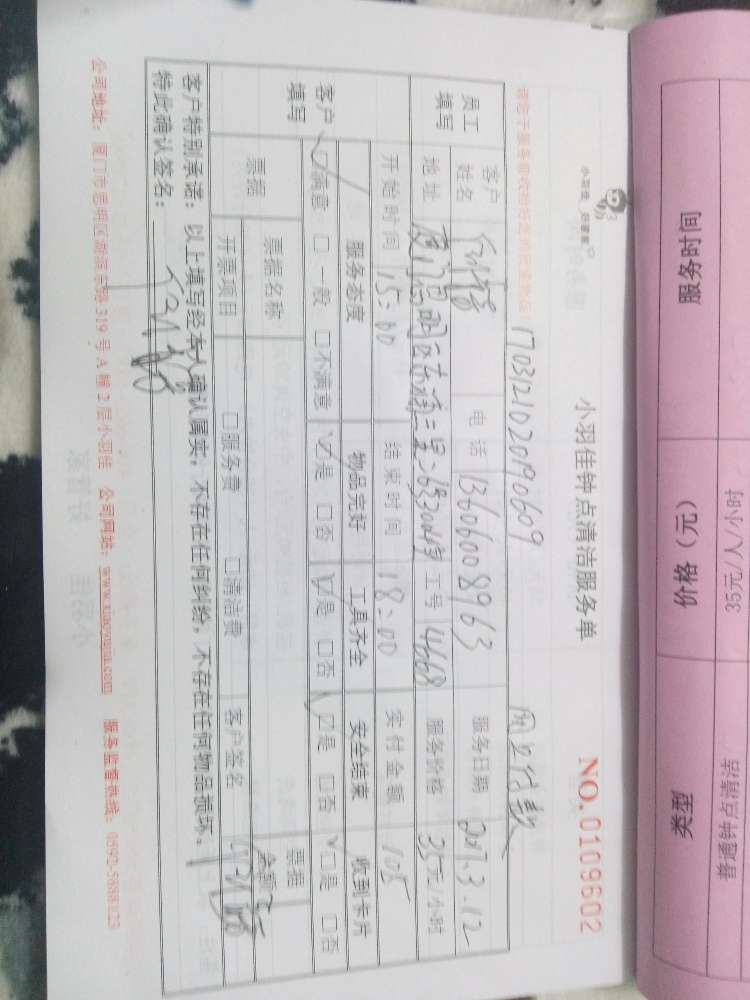 小羽佳钟点清洁服务单
NO.0109602
1703121020190609
网上付款
员工填写
客户姓名
电话 13606008963
服务日期 2017.3.12
地址
工号 4668
服务价格 35元/小时
开始时间 15:00
结束时间 18:00
实付金额 105
客户填写
服务态度 物品完好 工具齐全 安全结束 收到卡片
☑满意 □一般 □不满意 ☑是 □否 ☑是 □否 ☑是 □否 ☑是 □否
票据 票据名称 票据金额
开票项目 □服务费 □清洁费 客户签名
客户特别承诺：以上填写经本人确认属实，不存在任何纠纷，不存在任何物品损坏。
特此确认签名：
公司地址：厦门市思明区 319号A幢2层小羽佳 公司网站：www.xiaoyujia.com 服务监督热线：0592-5888125
类型 价格（元） 服务时间
普通钟点清洁 35元/人/小时